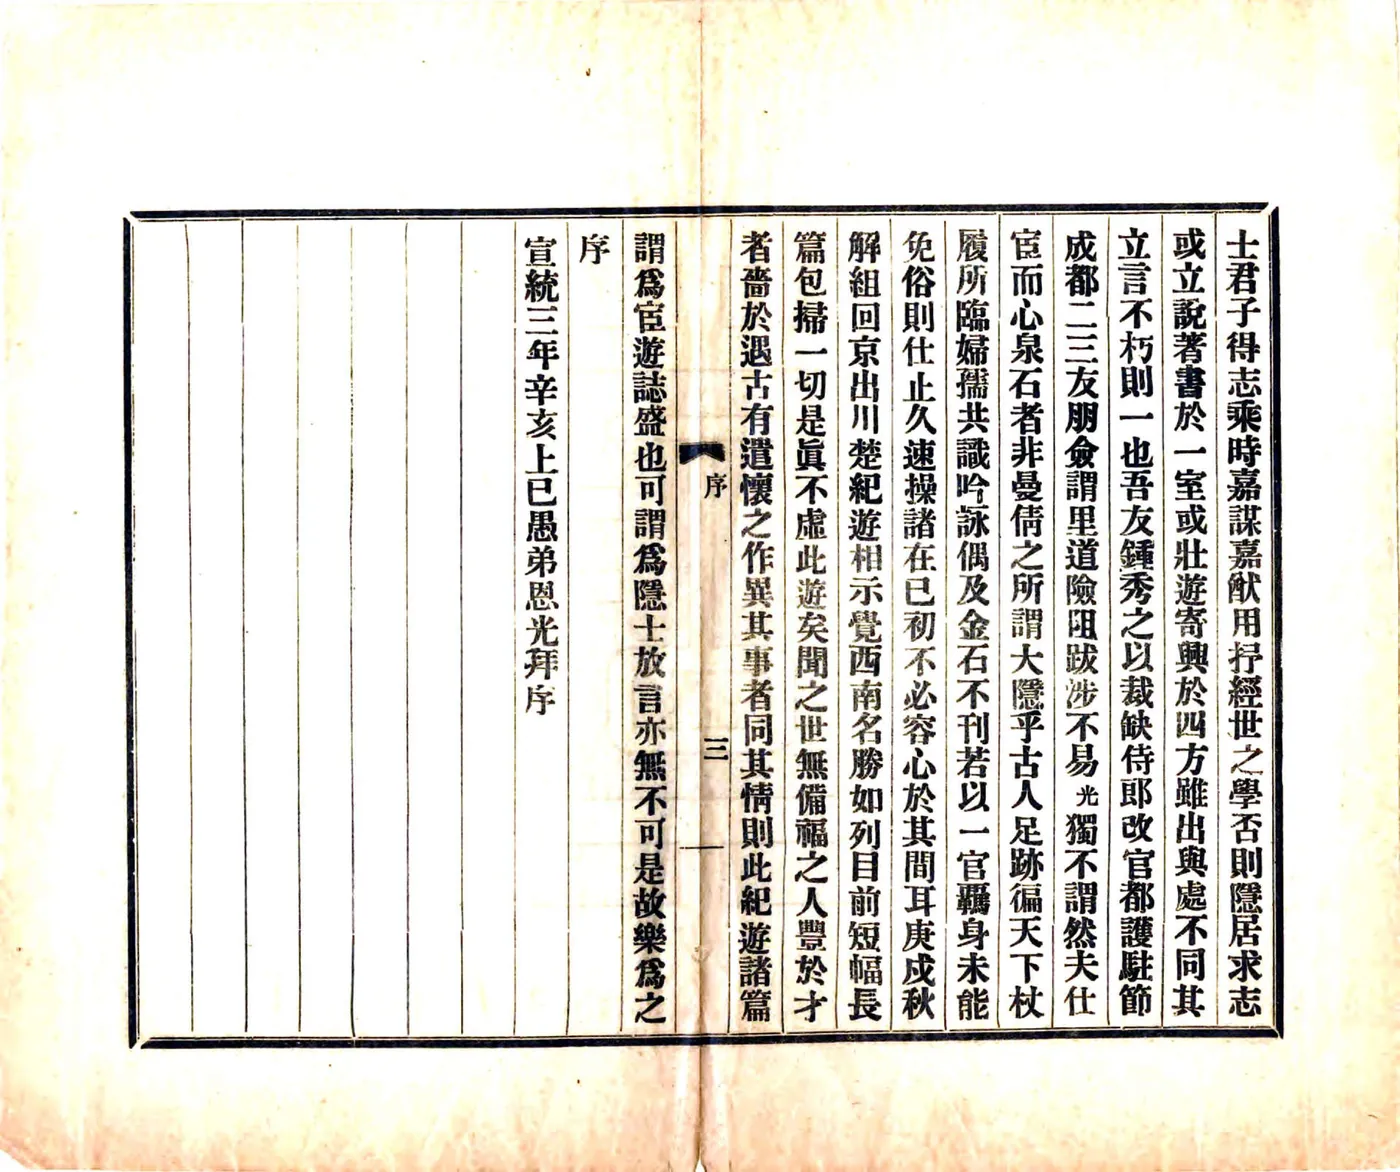 士君子得志乘時嘉謀嘉猷用抒經世之學否則隱居求志
或立說著書於一室或壯遊寄興於四方雖出與處不同其
立言不朽則一也吾友鍾秀之以裁缺侍郎改官都護駐節
成都二三友朋僉謂里道險阻跋涉不易光獨不謂然夫仕
宦而心泉石者非曼倩之所謂大隱乎古人足跡徧天下杖
履所臨婦孺共識吟詠偶及金石不刊若以一官羈身未能
免俗則仕止久速操諸在已初不必容心於其間耳庚戌秋
解組回京出川楚紀遊相示覺西南名勝如列目前短幅長
篇包掃一切是眞不虛此遊矣聞之世無備福之人豐於才
者嗇於遇古有遣懷之作異其事者同其情則此紀遊諸篇
序
三
謂爲宦遊誌盛也可謂爲隱士放言亦無不可是故樂爲之
序
宣統三年辛亥上巳愚弟恩光拜序